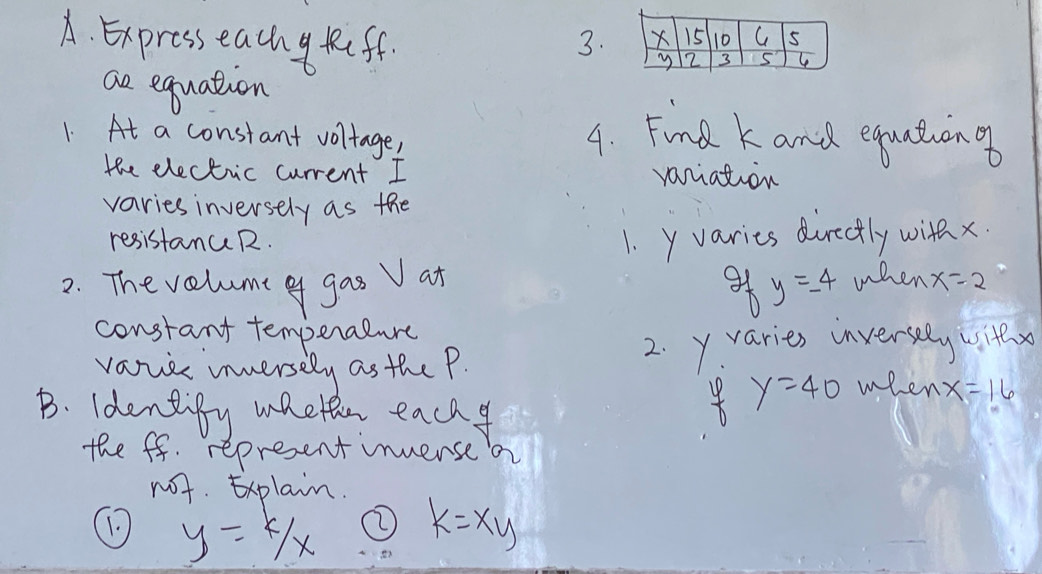 A. Express each of the ff.
as equation
1. At a constant voltage,
the electric current I
varies inversely as the
resistance R.
2. The volume of gas V at
constant temperature
varies inversely as the P.
B. Identify whether each of
the ff. represent inverse or
not. Explain.
① y = k/x ② k = xy
3. x 15 10 6 5
y 2 3 5 6
4. Find k and equation of
variation
1. y varies directly with x.
If y = -4 when x = 2
2. y varies inversely with x
if y = 40 when x = 16